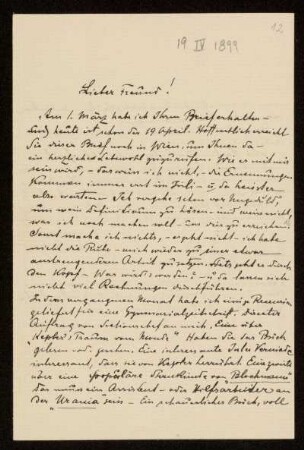 19 IV 1899
12
Lieber Freund!
Am 1. März hab ich Ihren Brief erhalten –
und heute ist schon der 19 April. Hoffentlich erreicht
Sie dieser Brief noch in Wien, um Ihnen da –
ein herzliches Lebewohl zuzurufen. Wie es mit mir
sein wird, – das weiss ich nicht, – die Ernennungen
kommen immer erst im Juli – u. da heisst es
also warten. Ich vergehe schon vor Ungeduld,
um mein definitivum zu hören – und weiss nicht,
was ich noch machen soll – um dies zu erreichen.
Sonst mache ich nichts, – es geht nicht – ich habe
nicht die Ruhe – mich wieder zu einer etwas
anstrengenderen Arbeit zu setzen. Stets geht es durch
den Kopf – Was wird's werden? – u. da lassen sich
nicht viel Rechnungen durchführen.
In dem vergangenen Monat hab ich einige Recensionen
geliefert für eine Gymnasialzeitschrift. Directer
Auftrag vom Sectionschef an mich, Eine über
Kepler's "Traum vom Monde" Haben Sie das Buch
gelesen oder gesehen. Eine interessante Sache
interessant, dass sie von Kepler herrührt. Eine zweite
über eine "populäre Sternkunde von Blochmann"
Das muss ein Assistent – oder Hilfsarbeiter an
der "Urania" sein – Ein schauderhaftes Buch, voll